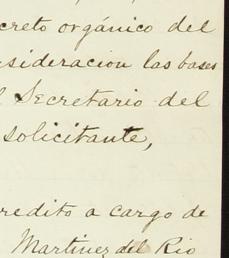 creto orgánico del
nsideracion las bases
l Secretario del
solicitante,
redito a cargo de
Martinez del Rio